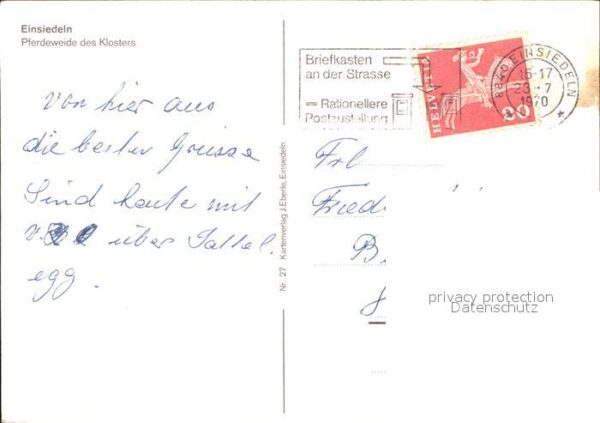 Einsiedeln
Pferdeweide des Klosters
von hier aus
die besten Grüsse
Sind heute mit
über Sattel-
egg.
Nr. 27 Kartenverlag J. Eberle, Einsiedeln
Briefkasten
an der Strasse
= Rationellere
Postzustellung
HELVETIA
20
8840 EINSIEDELN
16-17
23.-7
1970
Frl
Fried
B.
8
privacy protection
Datenschutz